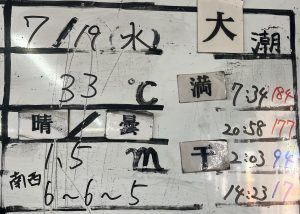 7/19(水) 大潮
33℃ 満 7:34 184
晴/曇 20:58 177
1.5m 干 2:03 94
南西 6~6~5 14:23 17